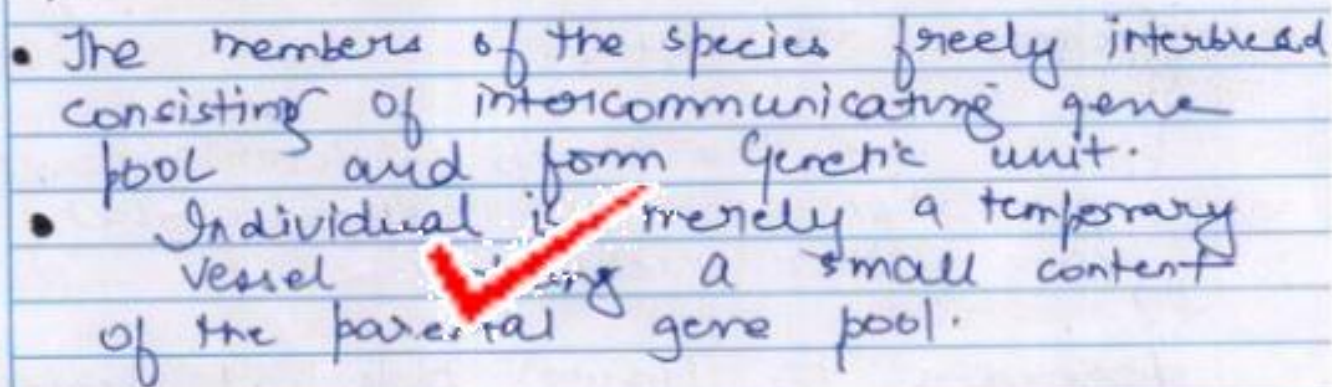 • The members of the species freely interbreed
consisting of intercommunicating gene
pool and form Genetic unit.
• Individual is merely a temporary
vessel a small content
of the parental gene pool.